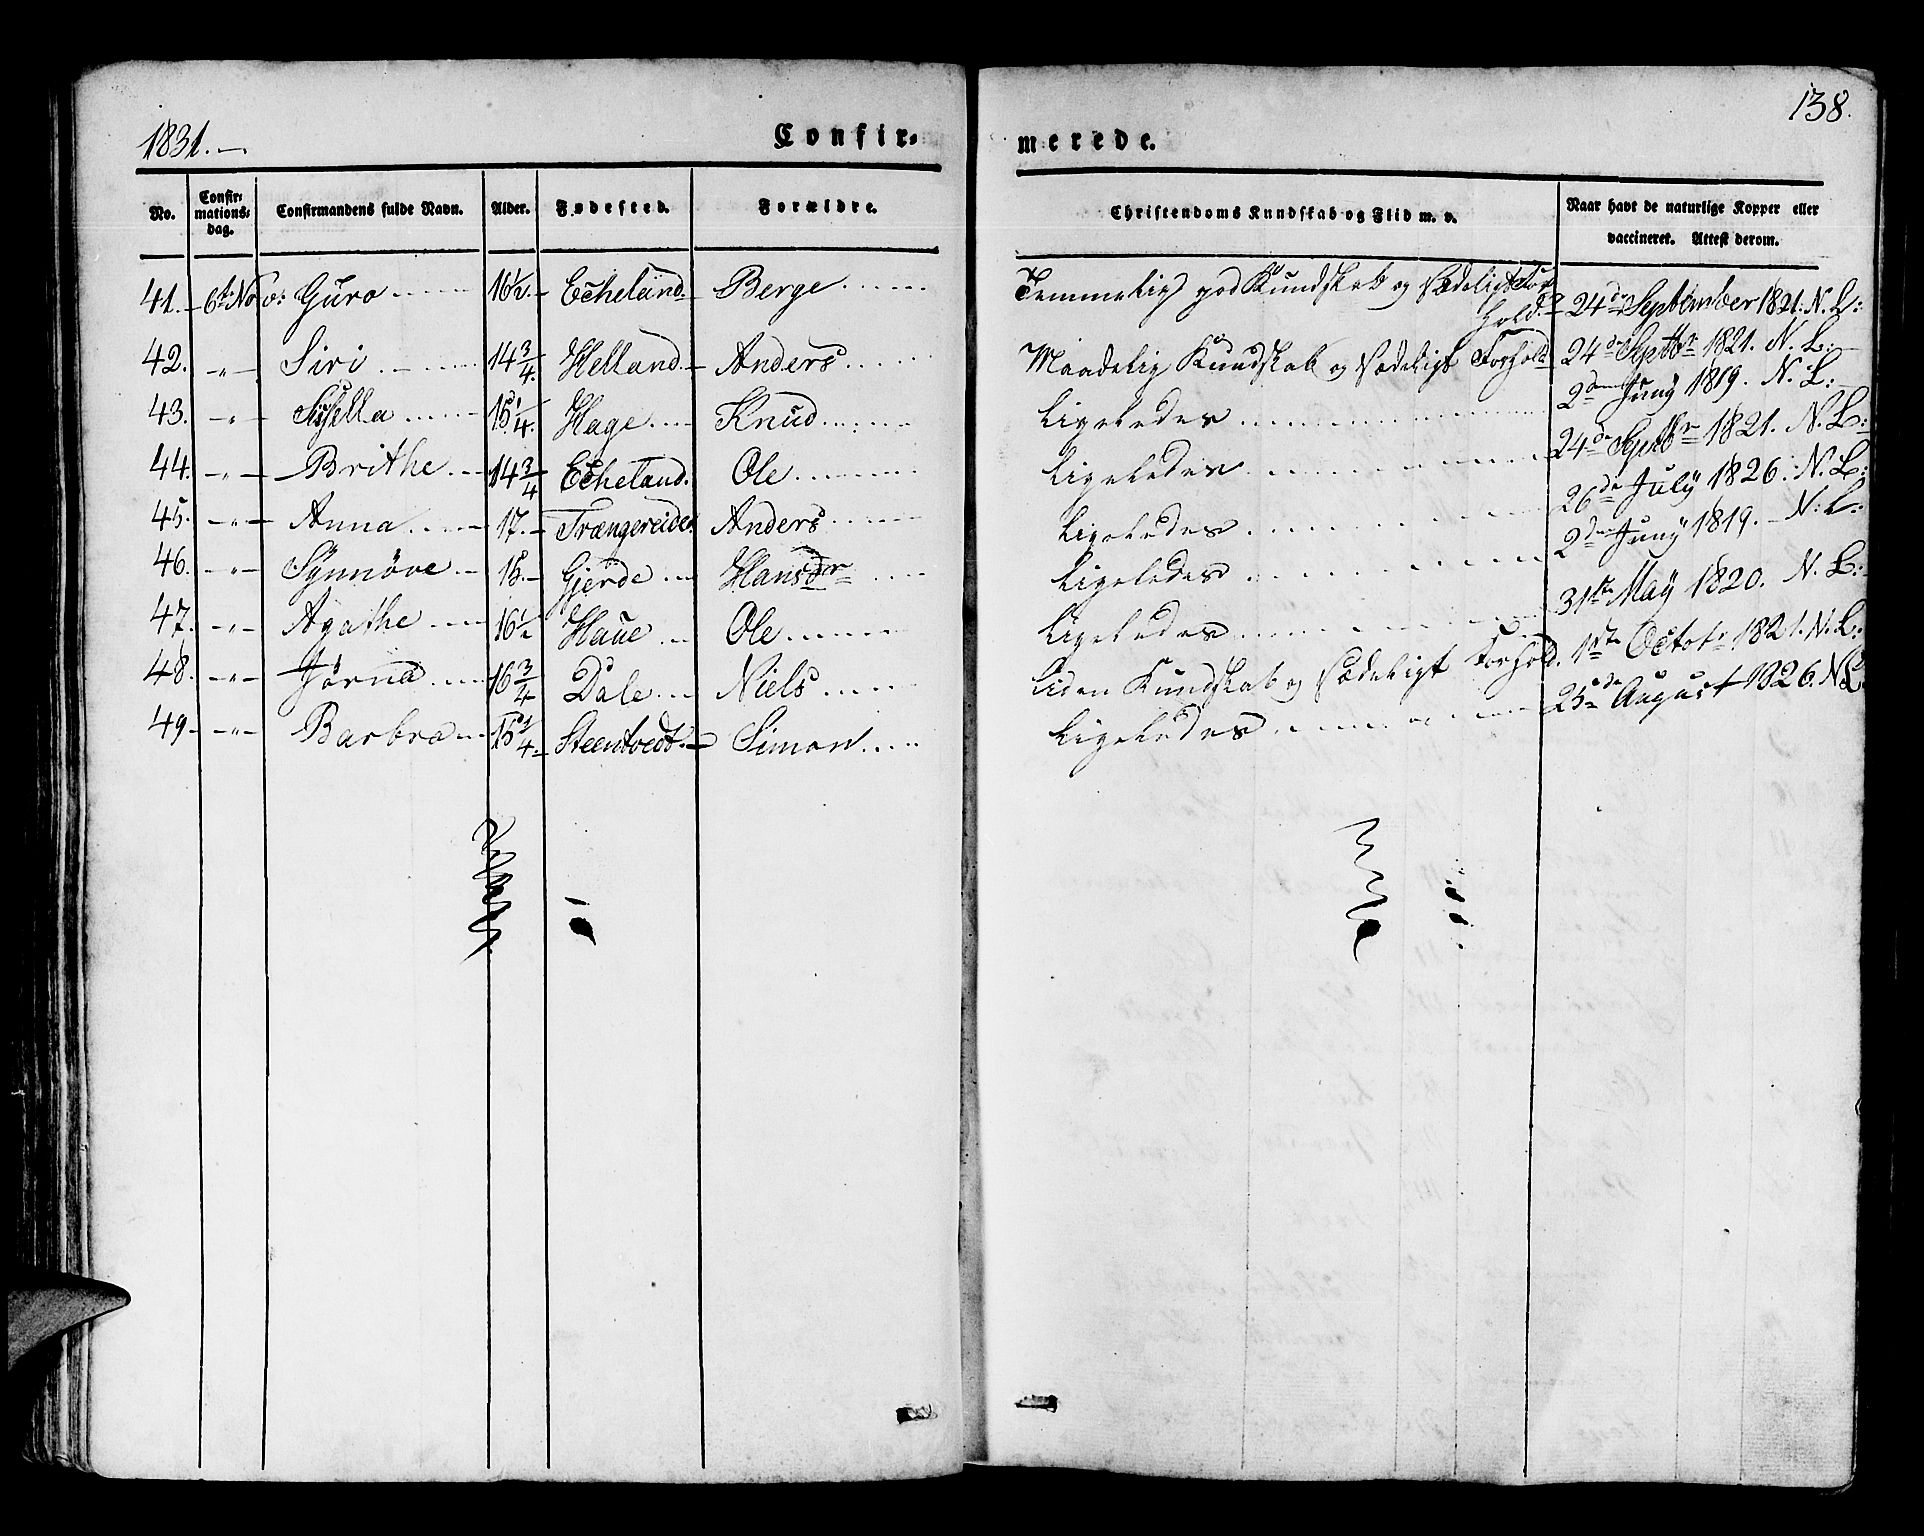 1831. —
Confir-
merede.
138.
No.
Confir-
mations-
dag.
Confirmandens fulde Navn.
Alder.
Fødested.
Forældre.
Christendoms Kundskab og Flid m. v.
Naar havt de naturlige Kopper eller
vaccineret. Attest derom.
41. – 6te Nov: Guro 16½ – Echeland – Berge Temmelig god Kundskab og sædeligt For-
hold. – 24de September 1821. N. L:
42. –„– Siri 14¾ Helland – Anders Maadelig Kundskab og sædeligt Forhold 24de Septbr 1821. N. L: –
43. –„– 15¼ Hage Knud ligeledes 2den Juny 1819. N. L: –
44. –„– Brithe 14¾ Echeland. Ole ligeledes 24de Septbr 1821. N. L: –
45. –„– Anna 17. – Trængereide. Anders ligeledes 26de July 1826. N. L:
46. –„– Synnöve – 15. – Gjerde Hans ligeledes 2den Juny 1819. – N. L:
47. –„– Agathe 16½ Haue Ole ligeledes 31te May 1820. N. L: –
48. –„– Jörna 16¾ Dale Niels liden Kundskab og sædeligt Forhold. 1ste Octobr 1821. N. L:
49 – –„– Barbra 15¼ – Steentvedt. – Simon ligeledes 25de August 1826. N L